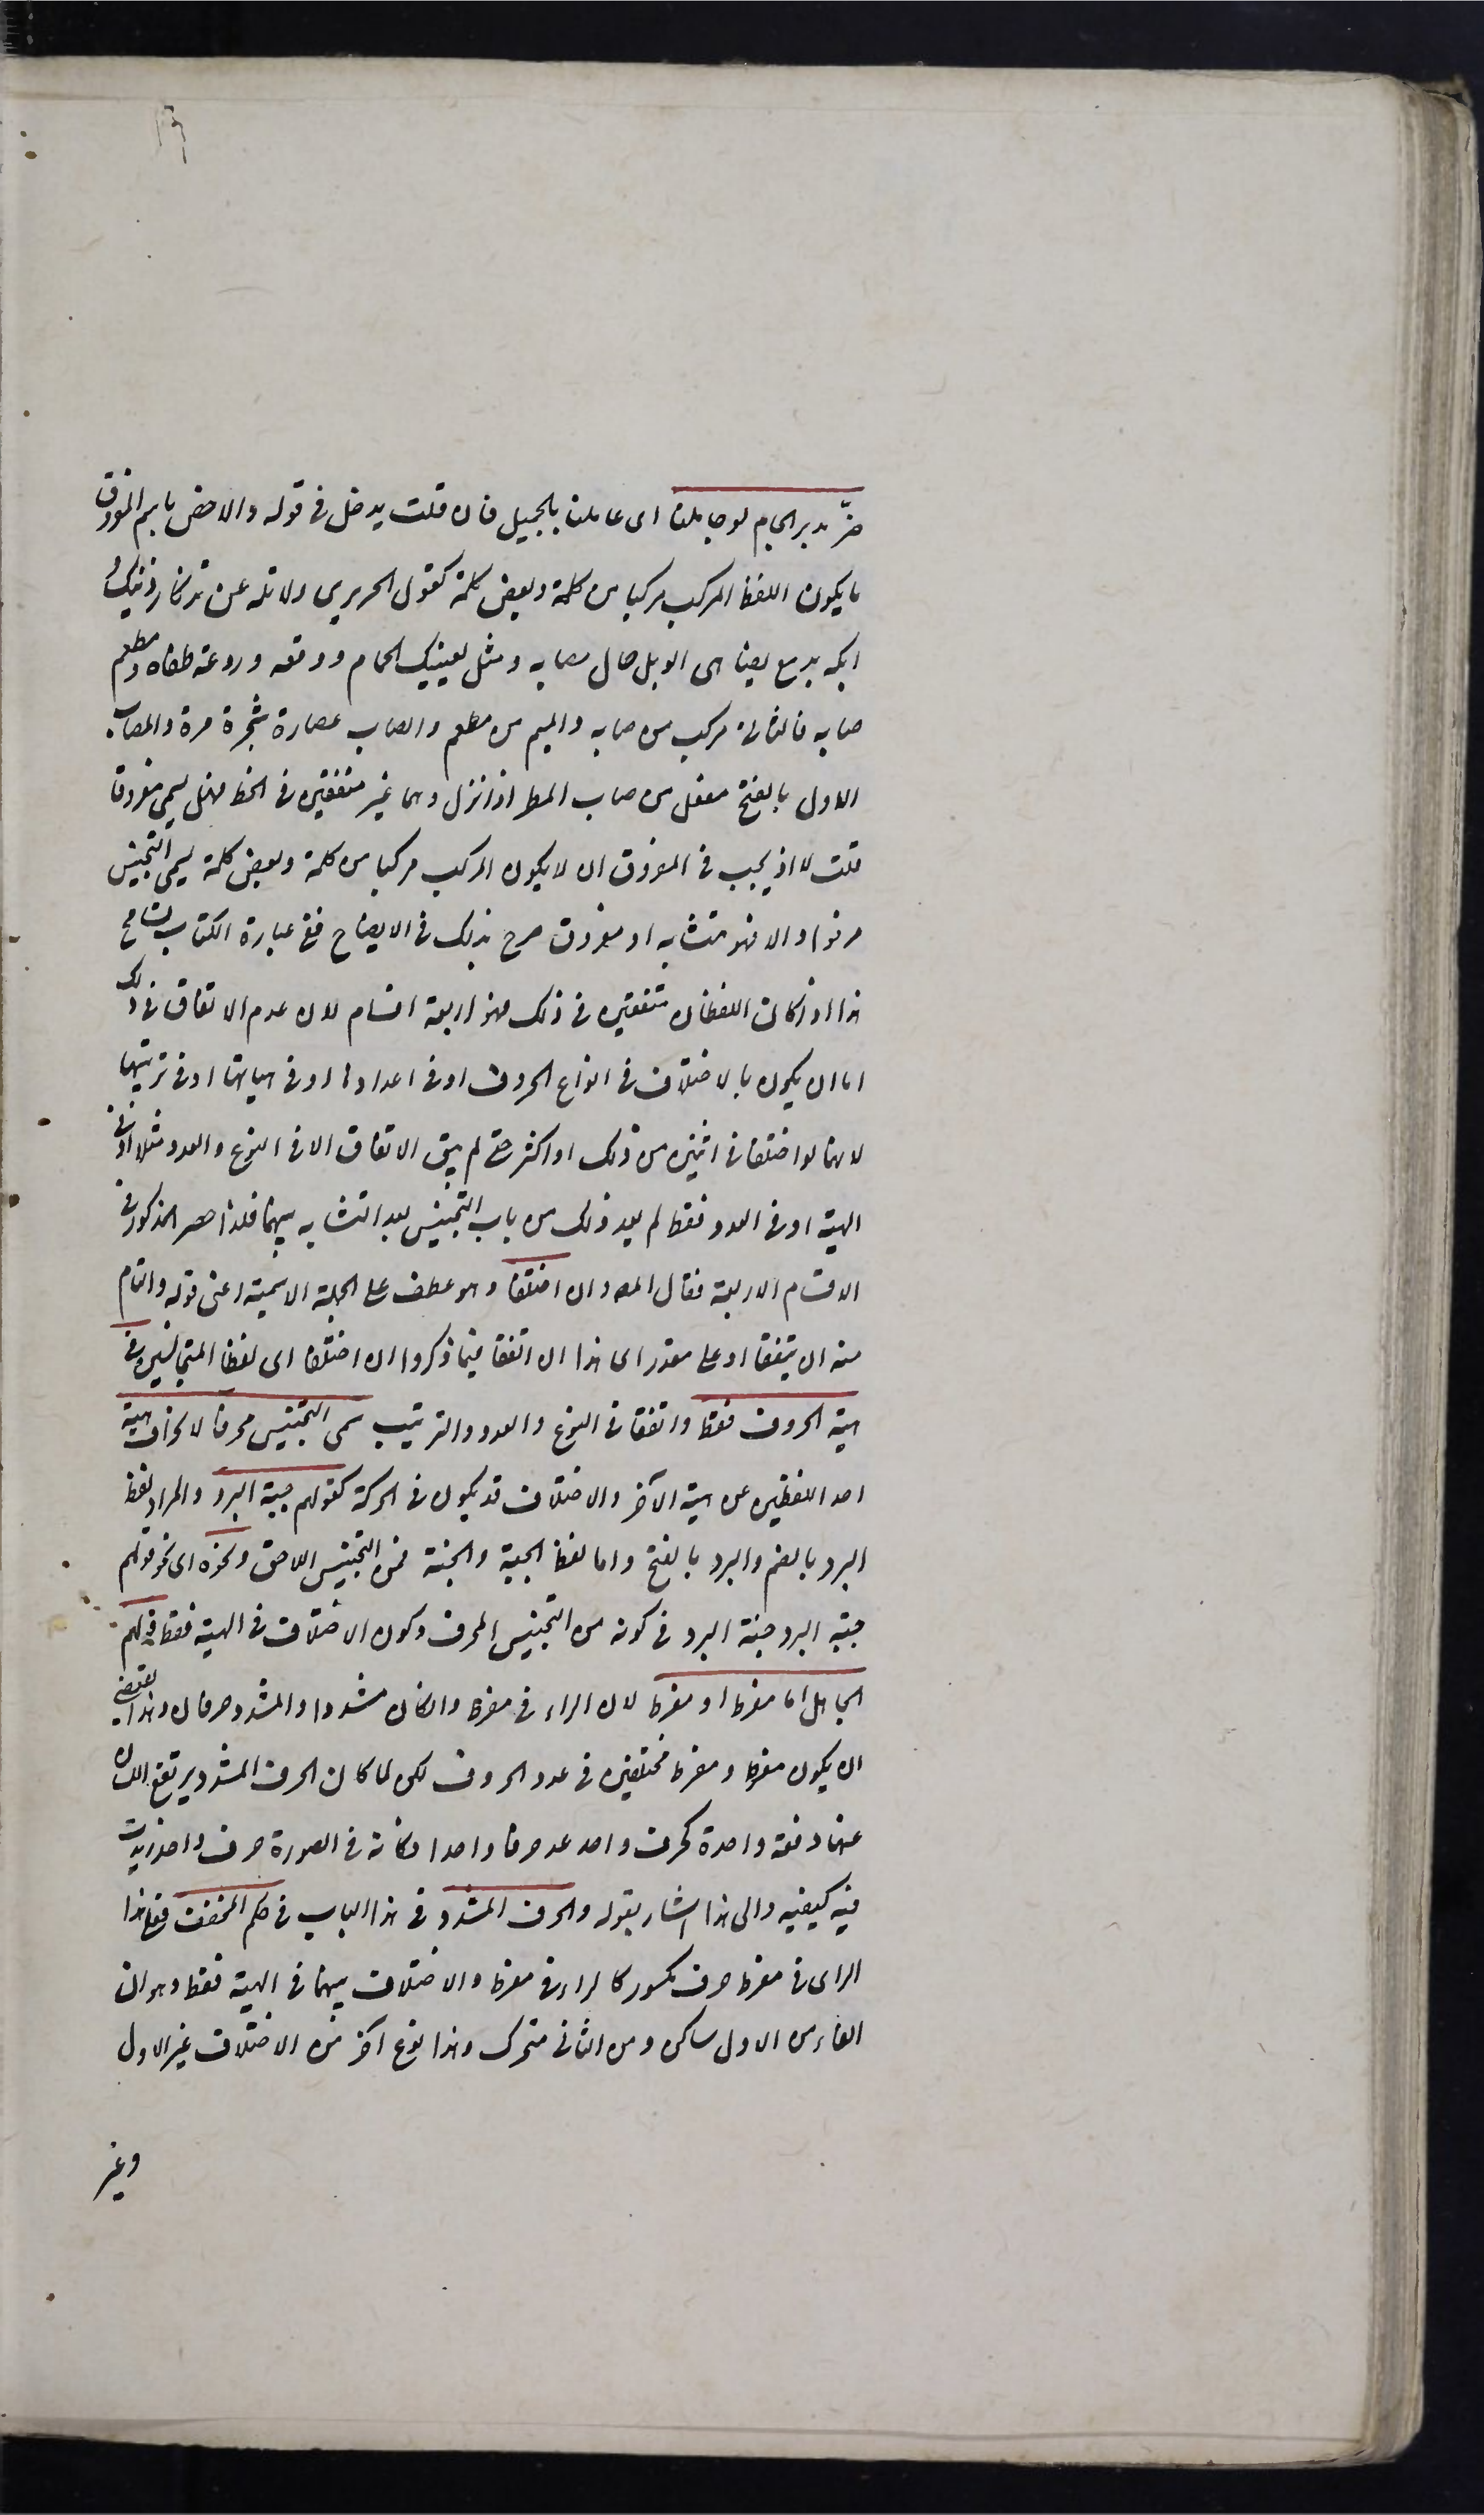 ضرّ مدير الجام لو جاملنا اى عاملنا بالجميل فان قلت يدخل فى قوله والا خص باسم المفروق
ما يكون اللفظ المركب مركبا من كلمة وبعض كلمة كقول الحريرى ولا تله عن تذكار ذنبك و
ابكه بدمع يضاهى الوبل حال مصابه ومثل لعينيك الحمام ووقعه وروعة ملقاه ومطعم
صابه فالثانى مركب من صابه والميم من مطعم والصاب عصارة شجرة مرة والمصاب
الاول بالفتح مفعل من صاب المطر اذا نزل وهما غير متفقين فى الخط فهل يسمى مفروقا
قلت لا اذ يجب فى المفروق ان لا يكون المركب مركبا من كلمة وبعض كلمة يسمى التجنيس
مرفوا والا فهو متشابه او مفروق صرح بذلك فى الايضاح ففى عبارة الكتاب تسامح
هذا اذا كان اللفظان متفقين فى ذلك فهو اربعة اقسام لان عدم الاتفاق فى ذلك
اما ان يكون بالاختلاف فى انواع الحروف او فى اعدادها او فى هيآتها او فى ترتيبها
لانهما لو اختلفا فى اثنين من ذلك او اكثر حتى لم يبق الاتفاق الا فى النوع والعدد مثلا او فى
الهيئة او فى العدد فقط لم يعد ذلك من باب التجنيس لبعد التشابه بينهما فلذا حصر المذكور فى
الاقسام الاربعة فقال المص وان اختلفا وهو عطف على الجملة الاسمية اعنى قوله والتام
منه ان يتفقا او على مقدر اى هذا ان اتفقا فيما ذكروا ان اختلفا اى لفظا المتجانسين فى
هيئة الحروف فقط واتفقا فى النوع والعدد والترتيب سمى التجنيس محرفا لانحراف هيئة
احد اللفظين عن هيئة الآخر والاختلاف قد يكون فى الحركة كقولهم جبة البرد والمراد لفظ
البرد بالضم والبرد بالفتح واما لفظ الجبة والجنة فمن التجنيس اللاحق ونحوه اى نحو قولهم
جبة البرد جنة البرد فى كونه من التجنيس المحرف وكون الاختلاف فى الهيئة فقط قولهم
الجاهل اما مفرط او مفرط لان الراء فى مفرط وان كان مشددا والمشدد حرفان وهذا يقتضى
ان يكون مفرط ومفرط مختلفين فى عدد الحروف لكن لما كان الحرف المشدد يرتفع اللسان
عنهما دفعة واحدة كحرف واحد عد حرفا واحدا فكأنه فى الصورة حرف واحد زيدت
فيه كيفية والى هذا اشار بقوله والحرف المشدد فى هذا الباب فى حكم المخفف فعلى هذا
الراى فى مفرط حرف مكسور كالراء فى مفرط والاختلاف بينهما فى الهيئة فقط وهو ان
الفاء من الاول ساكن ومن الثانى متحرك وهذا نوع آخر من الاختلاف غير الاول
وغير